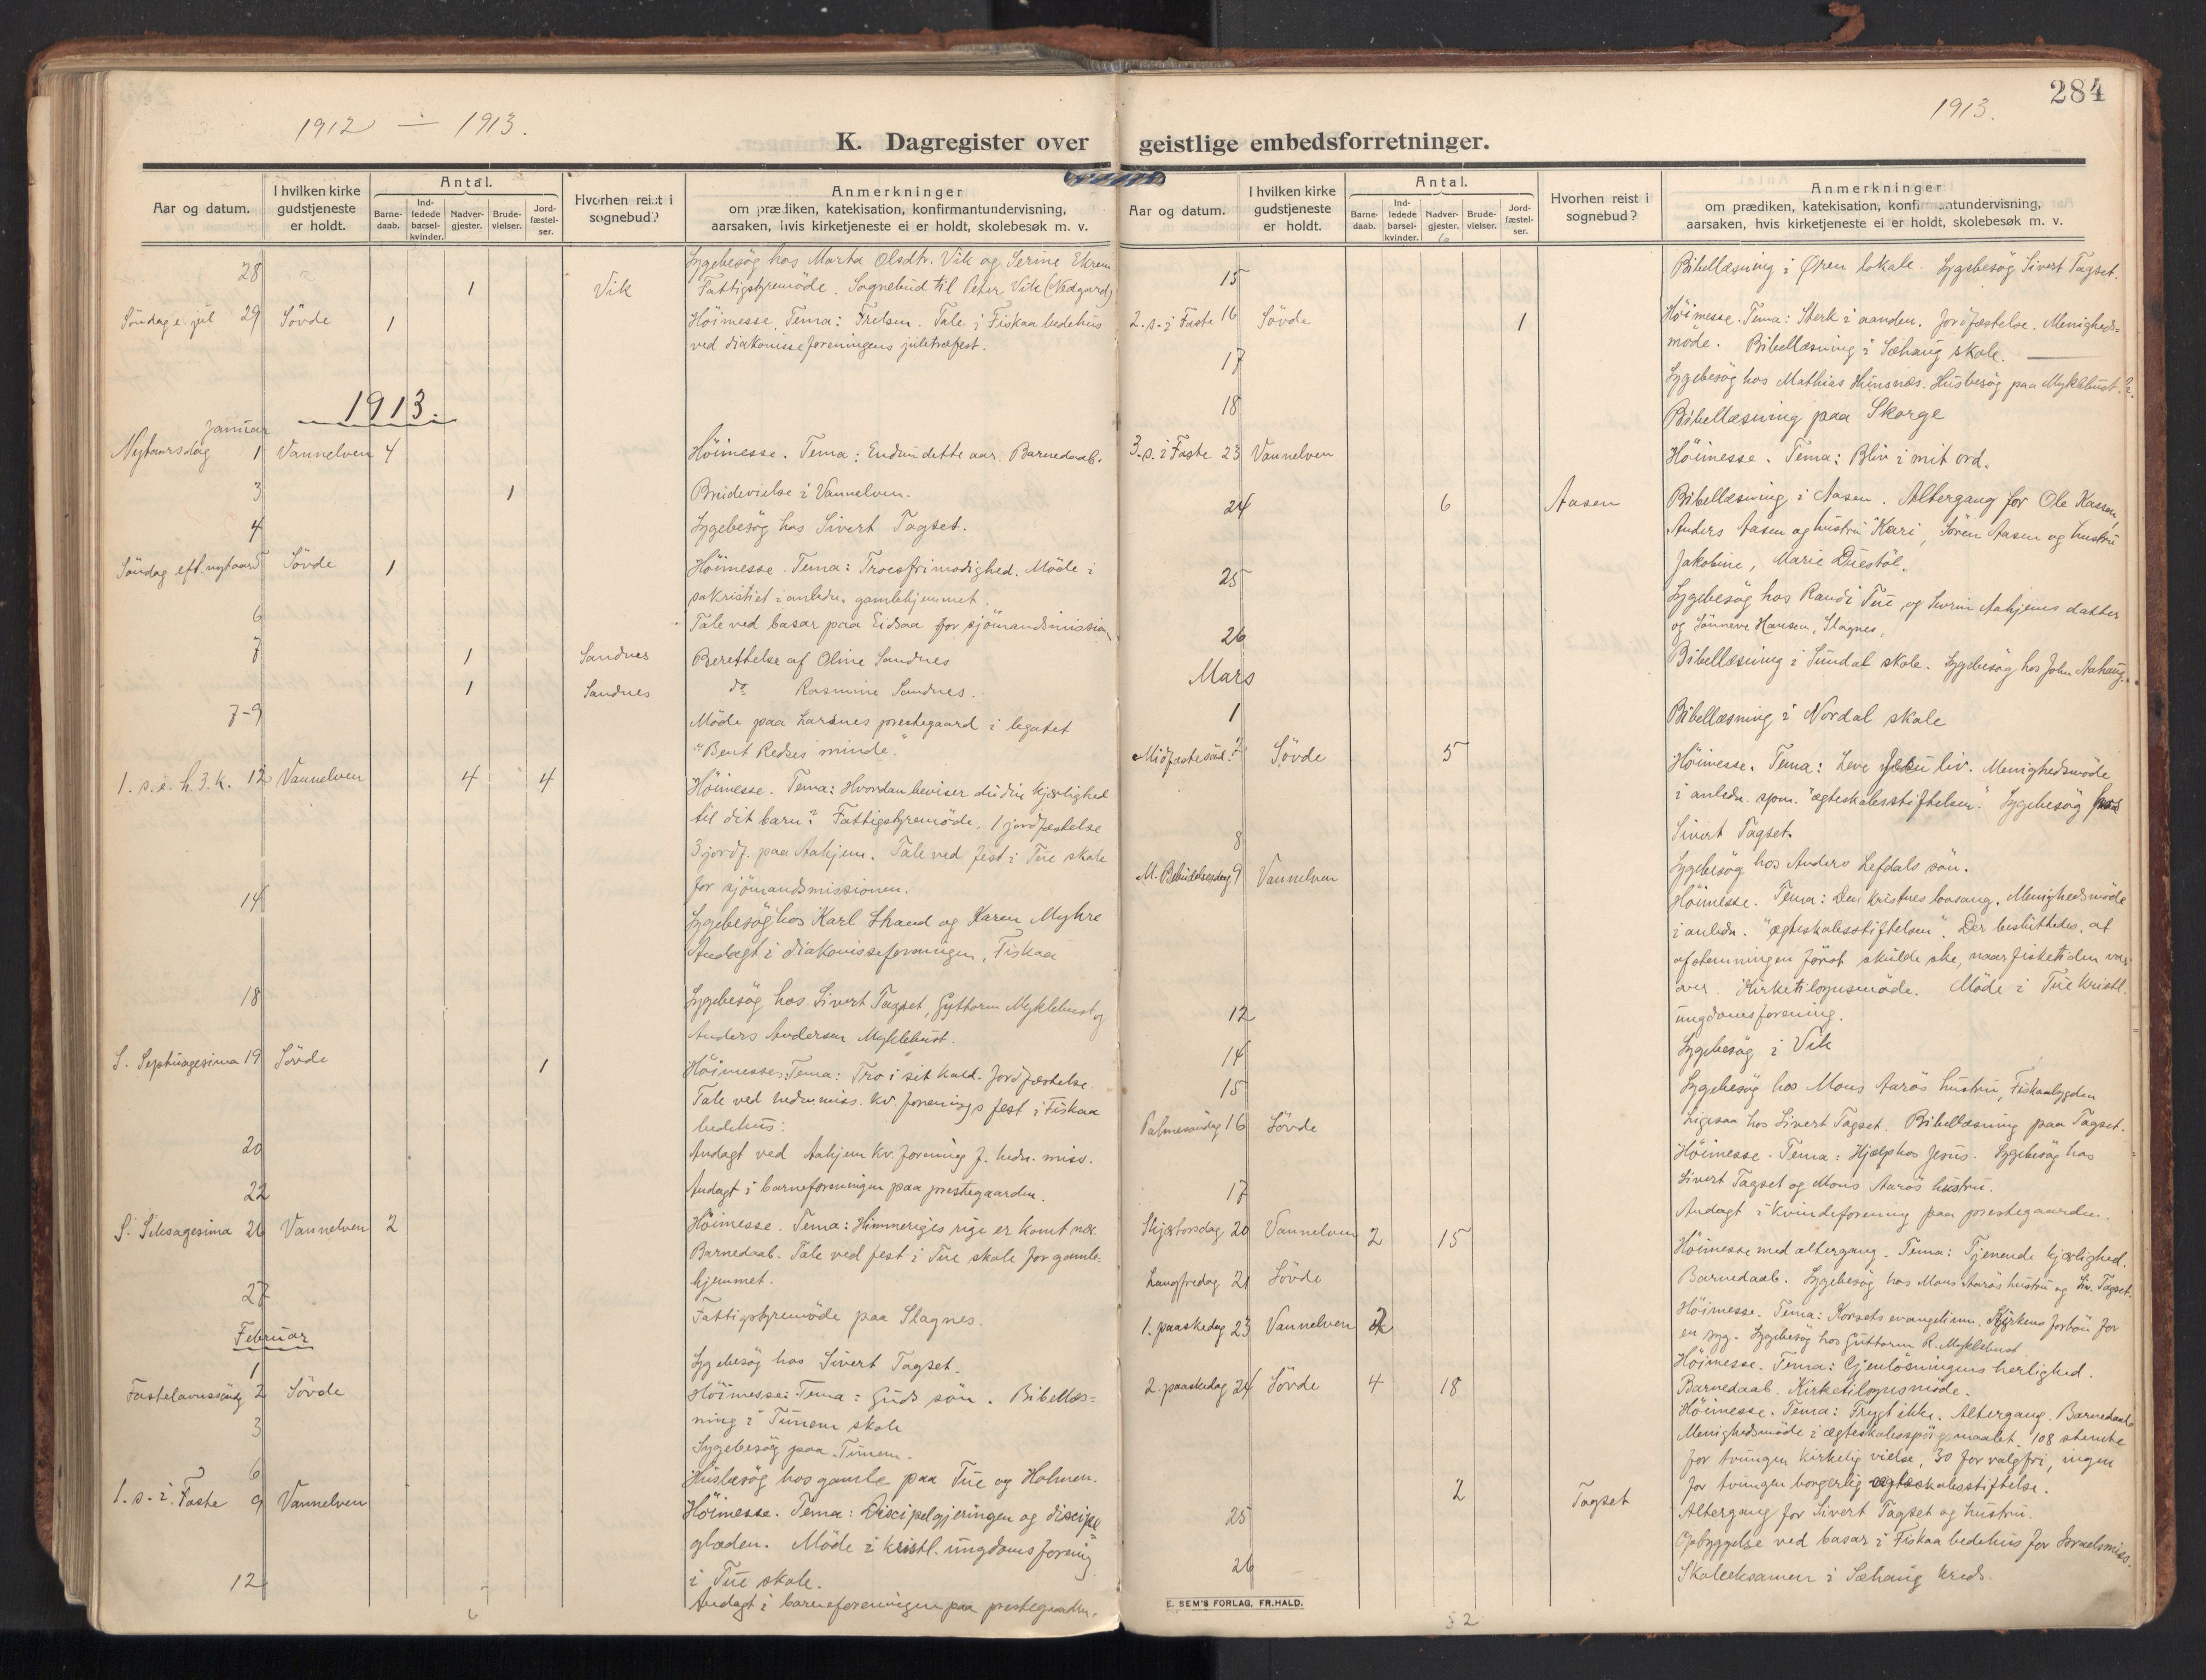 1912 ÷ 1913.
K. Dagregister over
Aar og datum.
I hvilken kirke gudstjeneste er holdt.
Antal.
Barne-daab.
Ind-ledede barsel-kvinder.
Nadver-gjester.
Brude-vielser.
Jord-fæstel-ser.
Hvorhen reist i sognebud?
Anmerkninger
om prædiken, katekisation, konfirmantundervisning,
aarsaken, hvis kirketjeneste ei er holdt, skolebesøk m. v.
28 1 Vik Sygebesög hos Marta Olsdtr. Vik og Serine Ekrem
Fattigstyremöde. Sognebud til Peter Vik (Nedgard)
Söndag e. jul 29 Sövde 1 Höimesse. Tema: Frelsen. Tale i Fiskaa bedehus
ved diakonisseforeningens juletræfest.
1913.
Januar
Nytaarsdag 1 Vannelven 4 Höimesse. Tema: Endnu dette aar. Barnedaab.
3 1 Brudevielse i Vannelven.
4 Sygebesög hos Sivert Tagset.
Söndag eft. nytaar 5 Sövde 1 Höimesse. Tema: Troesfrimodighed. Möde i
sakristiet i anledn. gamlehjemmet.
6 Tale ved basar paa Eidsaa for sjömandsmission
7 1 Sandnes Berettelse af Oline Sandnes
1 Sandnes do Rasmine Sandnes.
7-9 Möde paa Larsnes prestegaard i legatet
"Bent Redses minde."
1. s. e. h. 3. k. 12 Vannelven 4 4 Höimesse. Tema: Hvordan beviser du din kjærlighed
til dit barn? Fattigstyremöde. 1 jordfæstelse
3 jordf. paa Aahjem. Tale ved fest i Tue skole
for sjömandsmissionen.
14 Sygebesög hos Karl Strand og Karen Myhre
Andagt i diakonisseforeningen, Fiskaa
18 Sygebesög hos Sivert Tagset, Guttorm Myklebust og
Anders Andersen Myklebust.
S. Septuagesima 19 Sövde 1 Höimesse. Tema: Tro i sit kald. Jordfæstelse.
Tale ved hedn. miss. kv. forenings fest i Fiskaa
bedehus.
20 Andagt ved Aahjem kv. forening f. hedn. miss.
22 Andagt i barneforeningen paa prestegaarden.
S. Seksagesima 26 Vannelven 2 Höimesse. Tema: Himmeriges rige er komt nær.
Barnedaab. Tale ved fest i Tue skole for gamle-
hjemmet.
27 Fattigstyremöde paa Slagnes.
Februar
1 Sygebesög hos Sivert Tagset.
Fastelavnssöndg 2 Sövde Höimesse. Tema: Guds sön. Bibellæs=
ning i Tunem skole
3 Sygebesög paa Tunem.
6 Husbesög hos gamle paa Tue og Holmen.
1. s. i Faste 9 Vannelven Höimesse. Tema: Discipelgjerningen og discipel
glæden. Möde i kristl. ungdomsforening
i Tue skole.
12 Andagt i barneforeningen paa prestegaarden.
6
284
1913.
geistlige embedsforretninger.
Aar og datum.
I hvilken kirke gudstjeneste er holdt.
Antal.
Barne-daab.
Ind-ledede barsel-kvinder.
Nadver-gjester.
Brude-vielser.
Jord-fæstel-ser.
Hvorhen reist i sognebud?
Anmerkninger
om prædiken, katekisation, konfirmantundervisning,
aarsaken, hvis kirketjeneste ei er holdt, skolebesøk m. v.
6
15 Bibellæsning i Øren lokale. Sygebesög Sivert Tagset.
2. s. i Faste 16 Sövde 1 Höimesse. Tema: Sterk i aanden. Jordfæstelse. Menigheds=
möde. Bibellæsning i Sæhaug skole.
17 Sygebesög hos Mathias Hunsnes. Husbesög paa Myklebust.
18 Bibellæsning paa Skorge
3. s. i Faste 23 Vannelven Höimesse. Tema: Bliv i mit ord.
24 6 Aasen Bibellæsning i Aasen. Altergang for Ole Kassen,
Anders Aasen og hustru Kari, Sören Aasen og hustru
Jakobine, Marie Duestöl.
25 Sygebesög hos Randi Tue, og Severin Aahjems datter
og Sönneve Hansen, Slagnes.
26 Bibellæsning i Sundal skole. Sygebesög hos John Aahaug.
Mars
1 Bibellæsning i Nordal skole
Midfastesönd. 2 Sövde 5 Höimesse. Tema: Leve Jesu liv. Menighedsmöde
i anledn. spm. "ægteskabsstiftelsen." Sygebesög hos
Sivert Tagset.
8 Sygebesög hos Anders Lefdals sön.
M. Bebudelsesdag 9 Vannelven Höimesse. Tema: Den kristnes lovsang. Menighedsmöde
i anledn. "ægteskabsstiftelsen". Der besluttedes, at
afstemningen först skulde ske, naar fisketiden var
over. Kirketilsynsmöde. Möde i Tue kristl.
ungdomsforening.
12 Sygebesög i Vik
14 Sygebesög hos Mons Aarös hustru, Fiskaabygden
15 Ligesaa hos Sivert Tagset. Bibellæsning paa Tagset.
Palmesöndag 16 Sövde Höimesse. Tema: Hjælp hos Jesus. Sygebesög hos
Sivert Tagset og Mons Aarös hustru.
17 Andagt i kvindeforening paa prestegaarden.
Skjærtorsdag 20 Vannelven 2 15 Höimesse med altergang. Tema: Tjenende kjærlighed.
Barnedaab. Sygebesög hos Mons Aarös hustru og Siv. Tagset.
Langfredag 21 Sövde Höimesse. Tema: Korsets evangelium. Kirkens forbön for
en syg. Sygebesög hos Guttorm R. Myklebust.
1. paaskedag 23 Vannelven 2 Höimesse. Tema: Gjenlösningens herlighed.
Barnedaab. Kirketilsynsmöde.
2. paaskedag 24 Sövde 4 18 Höimesse. Tema: Frygt ikke. Altergang. Barnedaab
Menighedsmöde i ægteskabsspörgsmaalet. 108 stemte
for tvungen kirkelig vielse, 30 for valgfri, ingen
for tvungen borgerlig ægteskabsstiftelse.
25 2 Tagset Altergang for Sivert Tagset og hustru.
Opbyggelse ved basar i Fiskaa bedehus for Israelsmiss.
26 Skoleeksamen i Sæhaug kreds.
E. SEM'S FORLAG, FR.HALD.
52